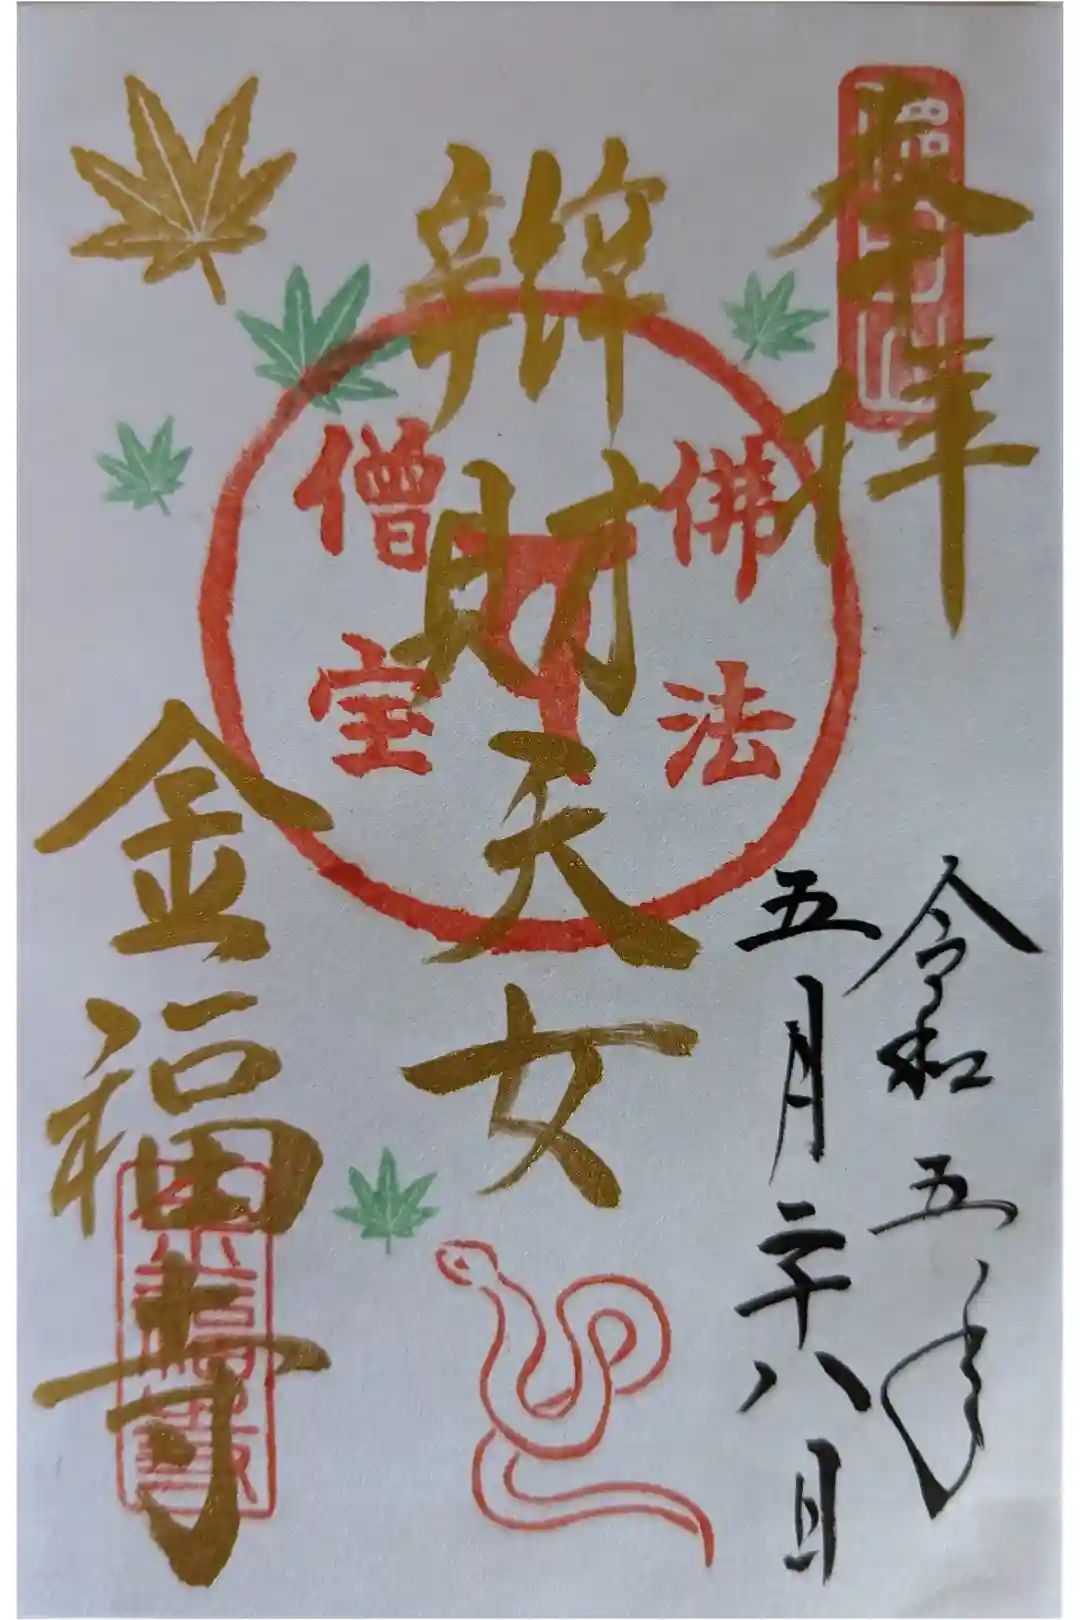 奉拝
令和五年
五月二十八日
辨財天女
佛法
僧宝
金福寺